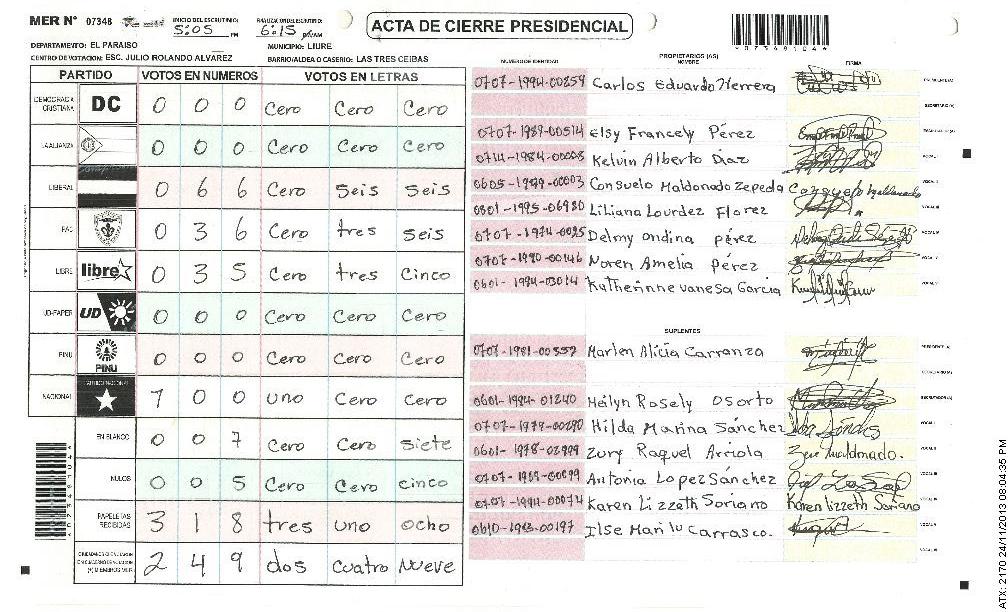 MER N° 07348
INICIO DEL ESCRUTINIO: 5:05 PM
FINALIZACION DEL ESCRUTINIO: 6:15 PM/AM
ACTA DE CIERRE PRESIDENCIAL
*073481044*
DEPARTAMENTO: EL PARAISO
MUNICIPIO: LIURE
CENTRO DE VOTACION: ESC. JULIO ROLANDO ALVAREZ
BARRIO/ALDEA O CASERIO: LAS TRES CEIBAS
PARTIDO VOTOS EN NUMEROS VOTOS EN LETRAS
DEMOCRACIA CRISTIANA DC 0 0 0 Cero Cero Cero
LA ALIANZA 0 0 0 Cero Cero Cero
LIBERAL 0 6 6 Cero Seis Seis
PAC 0 3 6 Cero tres seis
LIBRE libre 0 3 5 Cero tres Cinco
UD-FAPER UD 0 0 0 Cero Cero Cero
PINU PINU 0 0 0 Cero Cero Cero
NACIONAL PARTIDO NACIONAL 1 0 0 uno Cero Cero
EN BLANCO 0 0 7 Cero Cero siete
NULOS 0 0 5 Cero Cero cinco
PAPELETAS RECIBIDAS 3 1 8 tres uno ocho
2 4 9 dos Cuatro Nueve
NUMERO DE IDENTIDAD PROPIETARIOS (AS) NOMBRE FIRMA
0707-1994-00259 Carlos Eduardo Herrera PRESIDENTE (A)
SECRETARIO (A)
0707-1989-00514 Elsy Francely Pérez
0714-1984-00008 Kelvin Alberto Diaz VOCAL I
0605-1999-00003 Consuelo Maldonado Zepeda Consuelo Maldonado VOCAL II
0801-1995-06980 Liliana Lourdez Florez VOCAL III
0707-1974-0025 Delmy Ondina Pérez VOCAL IV
0707-1990-00146 Noren Amelia Pérez VOCAL V
0601-1994-03014 Katherinne Vanesa Garcia
SUPLENTES
0707-1981-00352 Marlen Alicia Carranza PRESIDENTE (A)
SECRETARIO (A)
0601-1984-01240 Heilyn Rosely Osorto
0707-1979-00290 Hilda Marina Sánchez VOCAL I
0601-1978-02999 Zury Raquel Arriola VOCAL II
0707-1969-00099 Antonia Lopez Sánchez VOCAL III
0707-1994-00074 Karen Lizzeth Soriano Karen lizzeth Soriano VOCAL IV
0610-1983-00197 Ilse Mari tu Carrasco. VOCAL V
ATX: 2170 24/11/2013 08:04:35 PM